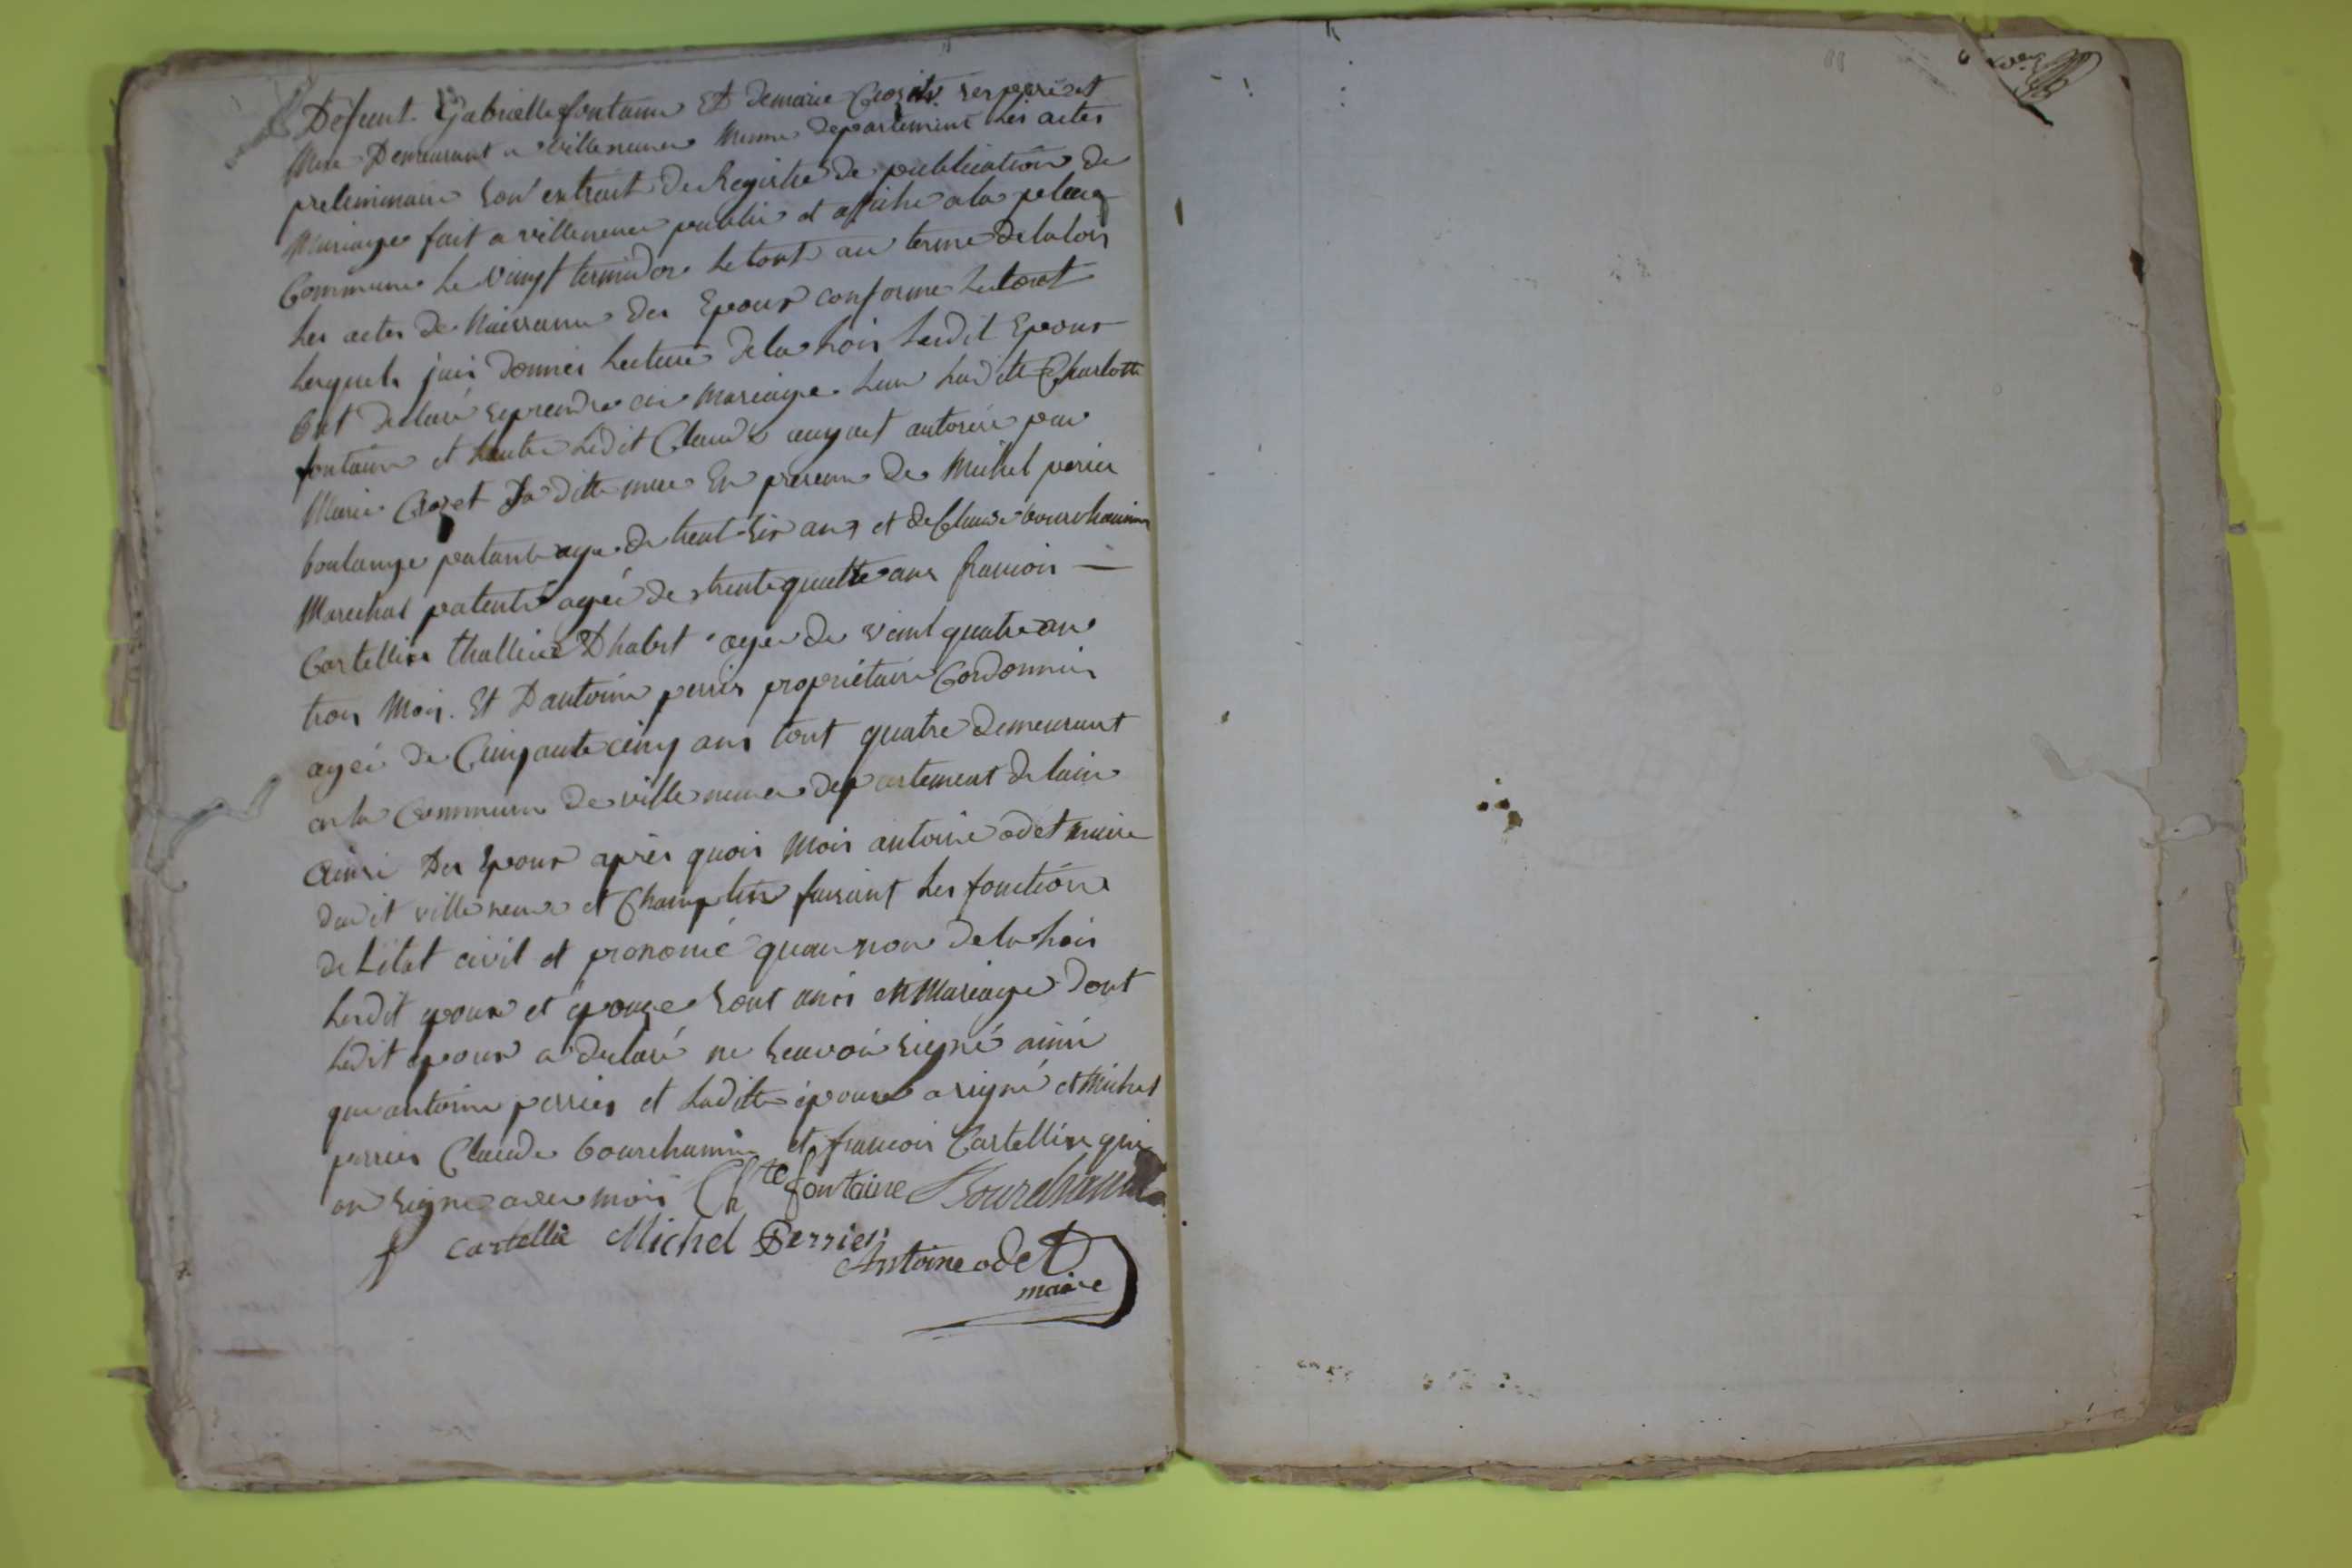 Defunt Gabrielle fontaine Et de marie Crozet ses pere et
Mere Demeurant a villeneuve meme departement Les actes
preliminaire son extrait de Registre de publication de
Mariage fait a villeneuve publié et afiche a la
Commune le vingt termidor le tout au terme de la loix
Les actes de Naissance des Epoux conforme le tout
Lesquels jais donnés Lecture de la loix Lesdit Epoux
Ont declaré se prendre en Mariage Lun Laditte Charlotte
fontaine et Lautre Ledit Claude autorisé par
Marie Crozet Sa ditte mere En presence de Michel perier
boulange patanté agé de trent six ans et de Claude bourchanin
Marechal patenté agée de trente quattre ans francois —
Castellin agé de vint quatre ans
trois Mois. Et Dantoine perier propriétaire Cordonnier
agée de Cinquante cinq ans tout quatre demeurant
en la Commune de villeneuve departement de lain
Ainsi Des Epoux aprés quois Mois antoine odet maire
dudit villeneuve et Champlin faisant les fonctions
de Létat civil et prononcé quau non de la Lois
Lesdit epoux et épouse sont unis en Mariage Dont
Ledit epoux a declaré ne scavoir signé ainsi
que antoine perrier et Laditte épouse a signé et Michel
perrier Claude bourchanin et francois Castellin qui
on signe avec mois Chte fontaine Bourchanin
f castellin Michel Perrier
Antoine odet
maire